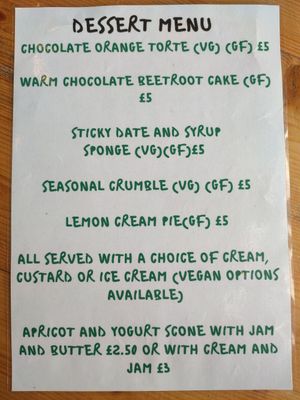 DESSERT MENU
CHOCOLATE ORANGE TORTE (VG) (GF) £5
WARM CHOCOLATE BEETROOT CAKE (GF)
£5
STICKY DATE AND SYRUP
SPONGE (VG)(GF)£5
SEASONAL CRUMBLE (VG) (GF) £5
LEMON CREAM PIE(GF) £5
ALL SERVED WITH A CHOICE OF CREAM,
CUSTARD OR ICE CREAM (VEGAN OPTIONS
AVAILABLE)
APRICOT AND YOGURT SCONE WITH JAM
AND BUTTER £2.50 OR WITH CREAM AND
JAM £3